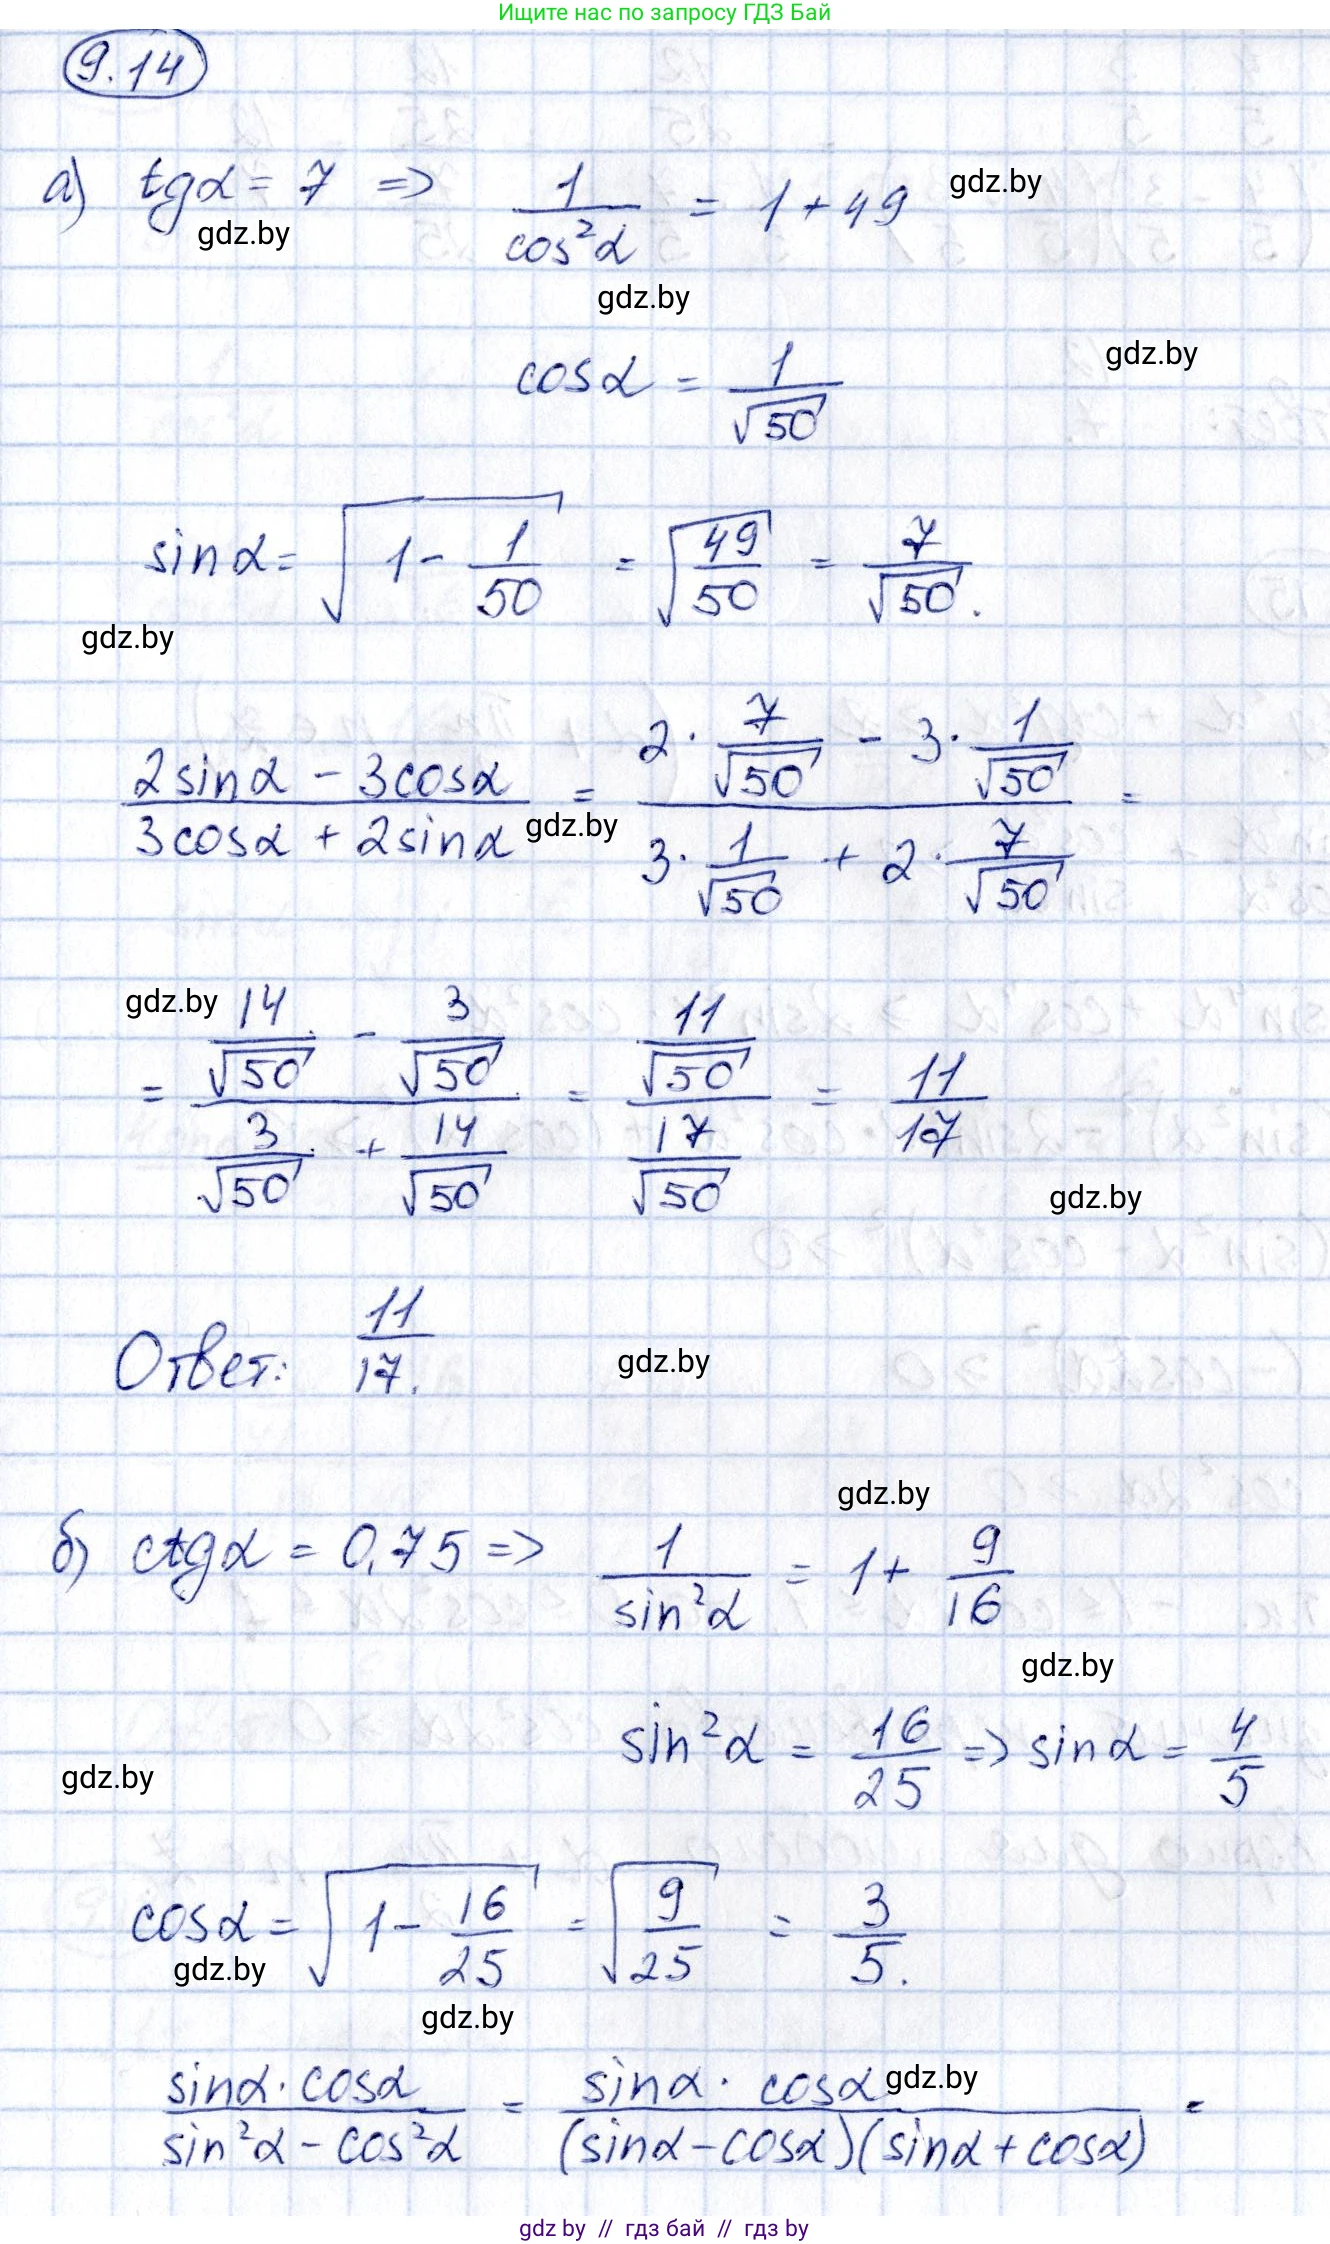 Ищите нас по запросу ГДЗ Бай
9.14
а) tgα = 7 => 1/cos²α = 1 + 49
gdz.by
gdz.by
gdz.by
cosα = 1/√50
gdz.by
sinα = √(1 - 1/50) = √(49/50) = 7/√50.
gdz.by
(2sinα - 3cosα)/(3cosα + 2sinα) = (2·7/√50 - 3·1/√50)/(3·1/√50 + 2·7/√50) =
gdz.by
gdz.by
= (14/√50 - 3/√50)/(3/√50 + 14/√50) = (11/√50)/(17/√50) = 11/17
gdz.by
Ответ: 11/17.
gdz.by
gdz.by
б) ctgα = 0,75 => 1/sin²α = 1 + 9/16
gdz.by
sin²α = 16/25 => sinα = 4/5
gdz.by
cosα = √(1 - 16/25) = √(9/25) = 3/5.
gdz.by
gdz.by
(sinα·cosα)/(sin²α - cos²α) = (sinα·cosα)/((sinα - cosα)(sinα + cosα)) =
gdz.by
gdz by // гдз бай // гдз by